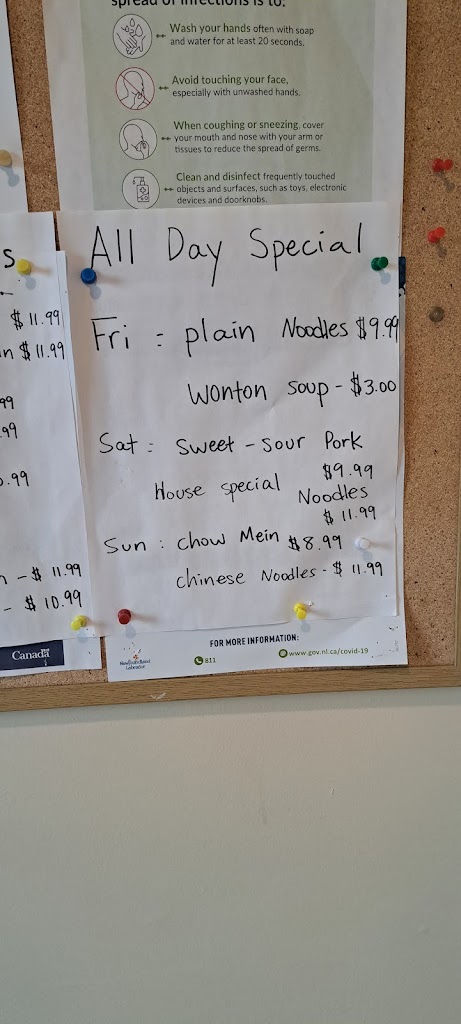 spread of infections is to:
Wash your hands often with soap
and water for at least 20 seconds.
Avoid touching your face,
especially with unwashed hands.
When coughing or sneezing, cover
your mouth and nose with your arm or
tissues to reduce the spread of germs.
Clean and disinfect frequently touched
objects and surfaces, such as toys, electronic
devices and doorknobs.
All Day Special
Fri : plain Noodles $9.99
Wonton soup - $3.00
Sat : Sweet - Sour Pork
$9.99
House special Noodles
$ 11.99
Sun : Chow Mein $8.99
Chinese Noodles - $ 11.99
s
$ 11.99
n $ 11.99
99
.99
.99
n - $ 11.99
- $ 10.99
Canada
Newfoundland
Labrador
FOR MORE INFORMATION:
811
www.gov.nl.ca/covid-19